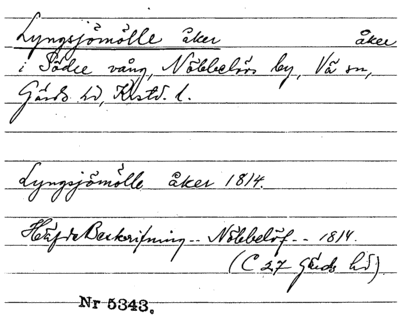 Lyngsjömölle åker åker
i Södre vång, Nöbbelövs by, Vä sn,
Gärds hd, Kristd. l.
Lyngsjömölle åker 1814.
HäfdeBeskrifning -- Nöbbelöf -- 1814.
(C 27 Gärds hd)
Nr 5343.